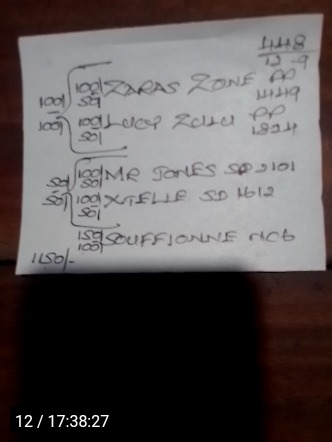 448
12-9
100/ 100/ 100/ 50/ ZARAS ZONE PP 1449
100/ 50/ LUCY ZULU PP 1824
50/ 50/ 100/ 50/ MR JONES SD 2101
100/ 50/ XTELLE SD 1612
150/ 100/ SOUFFIONNE NC6
1150/-
12 / 17:38:27